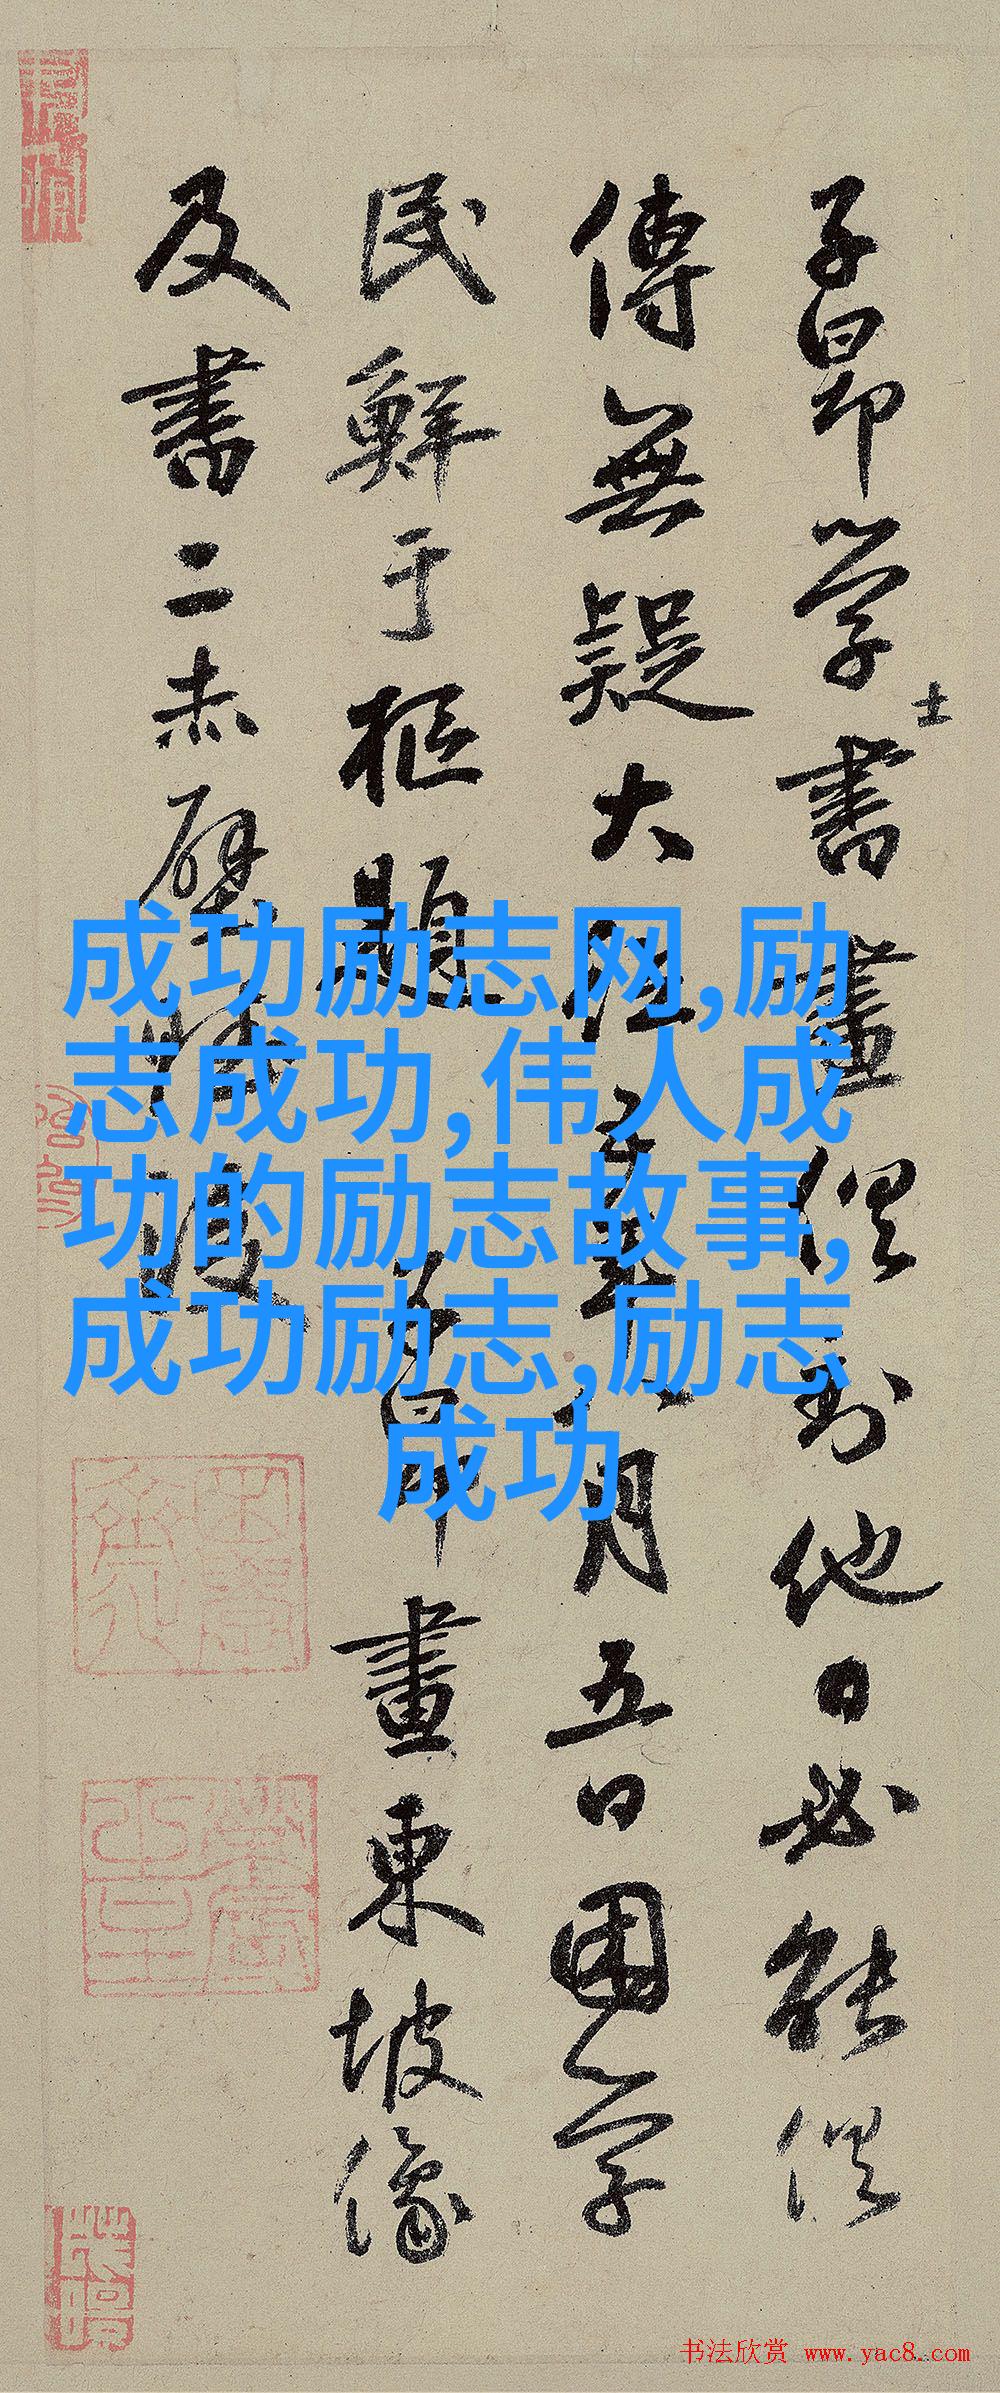 子昂学士書畫俱到他日必能俱
傳無疑大月五日困学
民鮮于樞題子昂畫東坡像
及書二赤壁賦後
成功励志网,励
志成功,伟人成
功的励志故事,
成功励志,励志
成功
书法欣赏 www.yac8.com